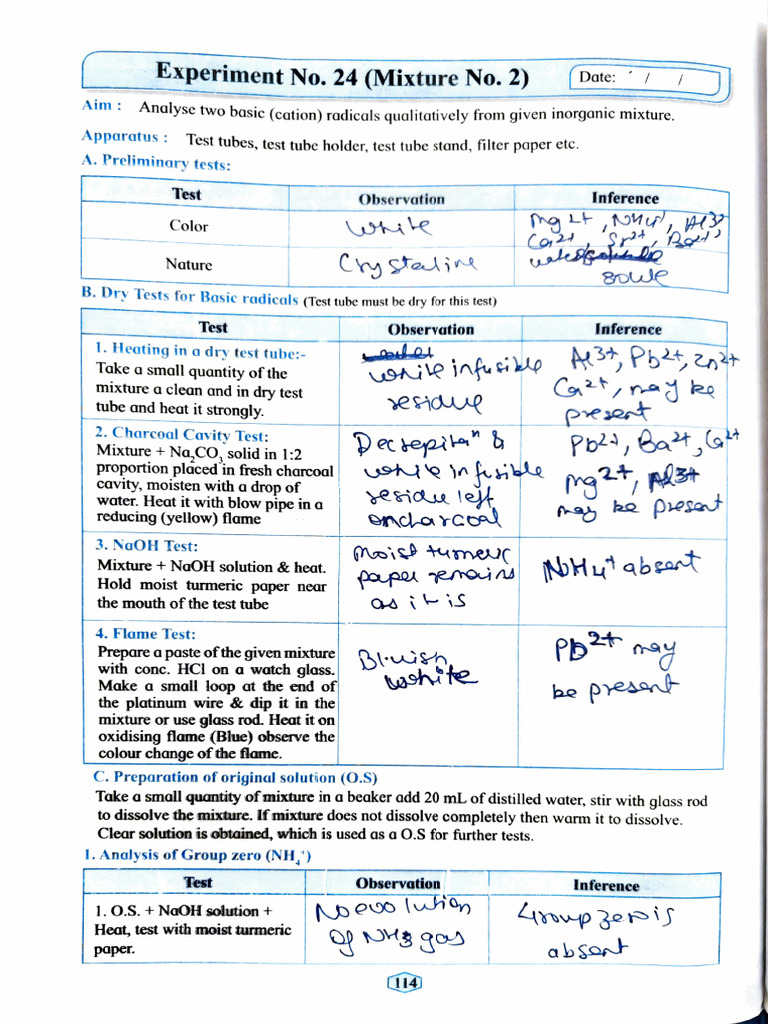 Experiment No. 24 (Mixture No. 2)
Date: / /
Aim : Analyse two basic (cation) radicals qualitatively from given inorganic mixture.
Apparatus : Test tubes, test tube holder, test tube stand, filter paper etc.
A. Preliminary tests:
Test Observation Inference
Color white Mg2+, NH4+, Al3+
Ca2+, Sr2+, Ba2+,
Nature Crystaline
B. Dry Tests for Basic radicals (Test tube must be dry for this test)
Test Observation Inference
1. Heating in a dry test tube:-
Take a small quantity of the
mixture a clean and in dry test
tube and heat it strongly.
white infusible
residue
Al3+, Pb2+, Zn2+
Ca2+, may be
present
2. Charcoal Cavity Test:
Mixture + Na2CO3 solid in 1:2
proportion placed in fresh charcoal
cavity, moisten with a drop of
water. Heat it with blow pipe in a
reducing (yellow) flame
Decrepitan &
white infusible
residue left
oncharcoal
Pb2+, Ba2+, Ca2+
mg2+, Al3+
may be present
3. NaOH Test:
Mixture + NaOH solution & heat.
Hold moist turmeric paper near
the mouth of the test tube
Moist tumeric
paper remains
as it is
NH4+ absent
4. Flame Test:
Prepare a paste of the given mixture
with conc. HCl on a watch glass.
Make a small loop at the end of
the platinum wire & dip it in the
mixture or use glass rod. Heat it on
oxidising flame (Blue) observe the
colour change of the flame.
Bluish
white
Pb2+ may
be present
C. Preparation of original solution (O.S)
Take a small quantity of mixture in a beaker add 20 mL of distilled water, stir with glass rod
to dissolve the mixture. If mixture does not dissolve completely then warm it to dissolve.
Clear solution is obtained, which is used as a O.S for further tests.
1. Analysis of Group zero (NH4+)
Test Observation Inference
1. O.S. + NaOH solution +
Heat, test with moist turmeric
paper.
No evolution
of NH3 gas
Group zero is
absent
114